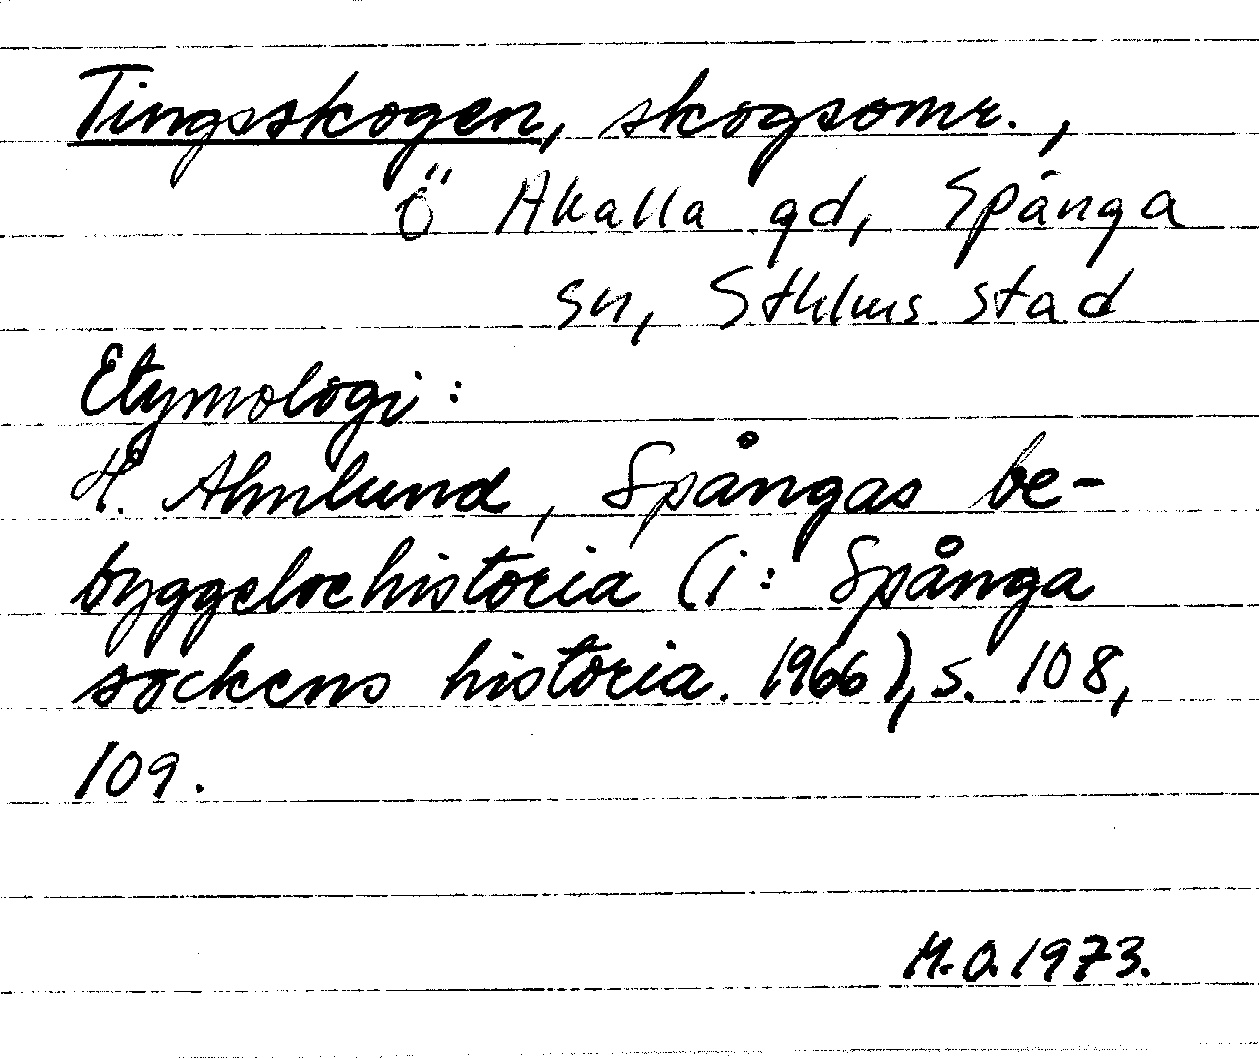 Tingsskogen, skogsomr.,
Ö Akalla gd, Spånga
sn, Sthlms stad
Etymologi:
H. Ahnlund, Spångas be-
byggelsehistoria (i: Spånga
sockens historia. 1966), s. 108,
109.
M.O. 1973.